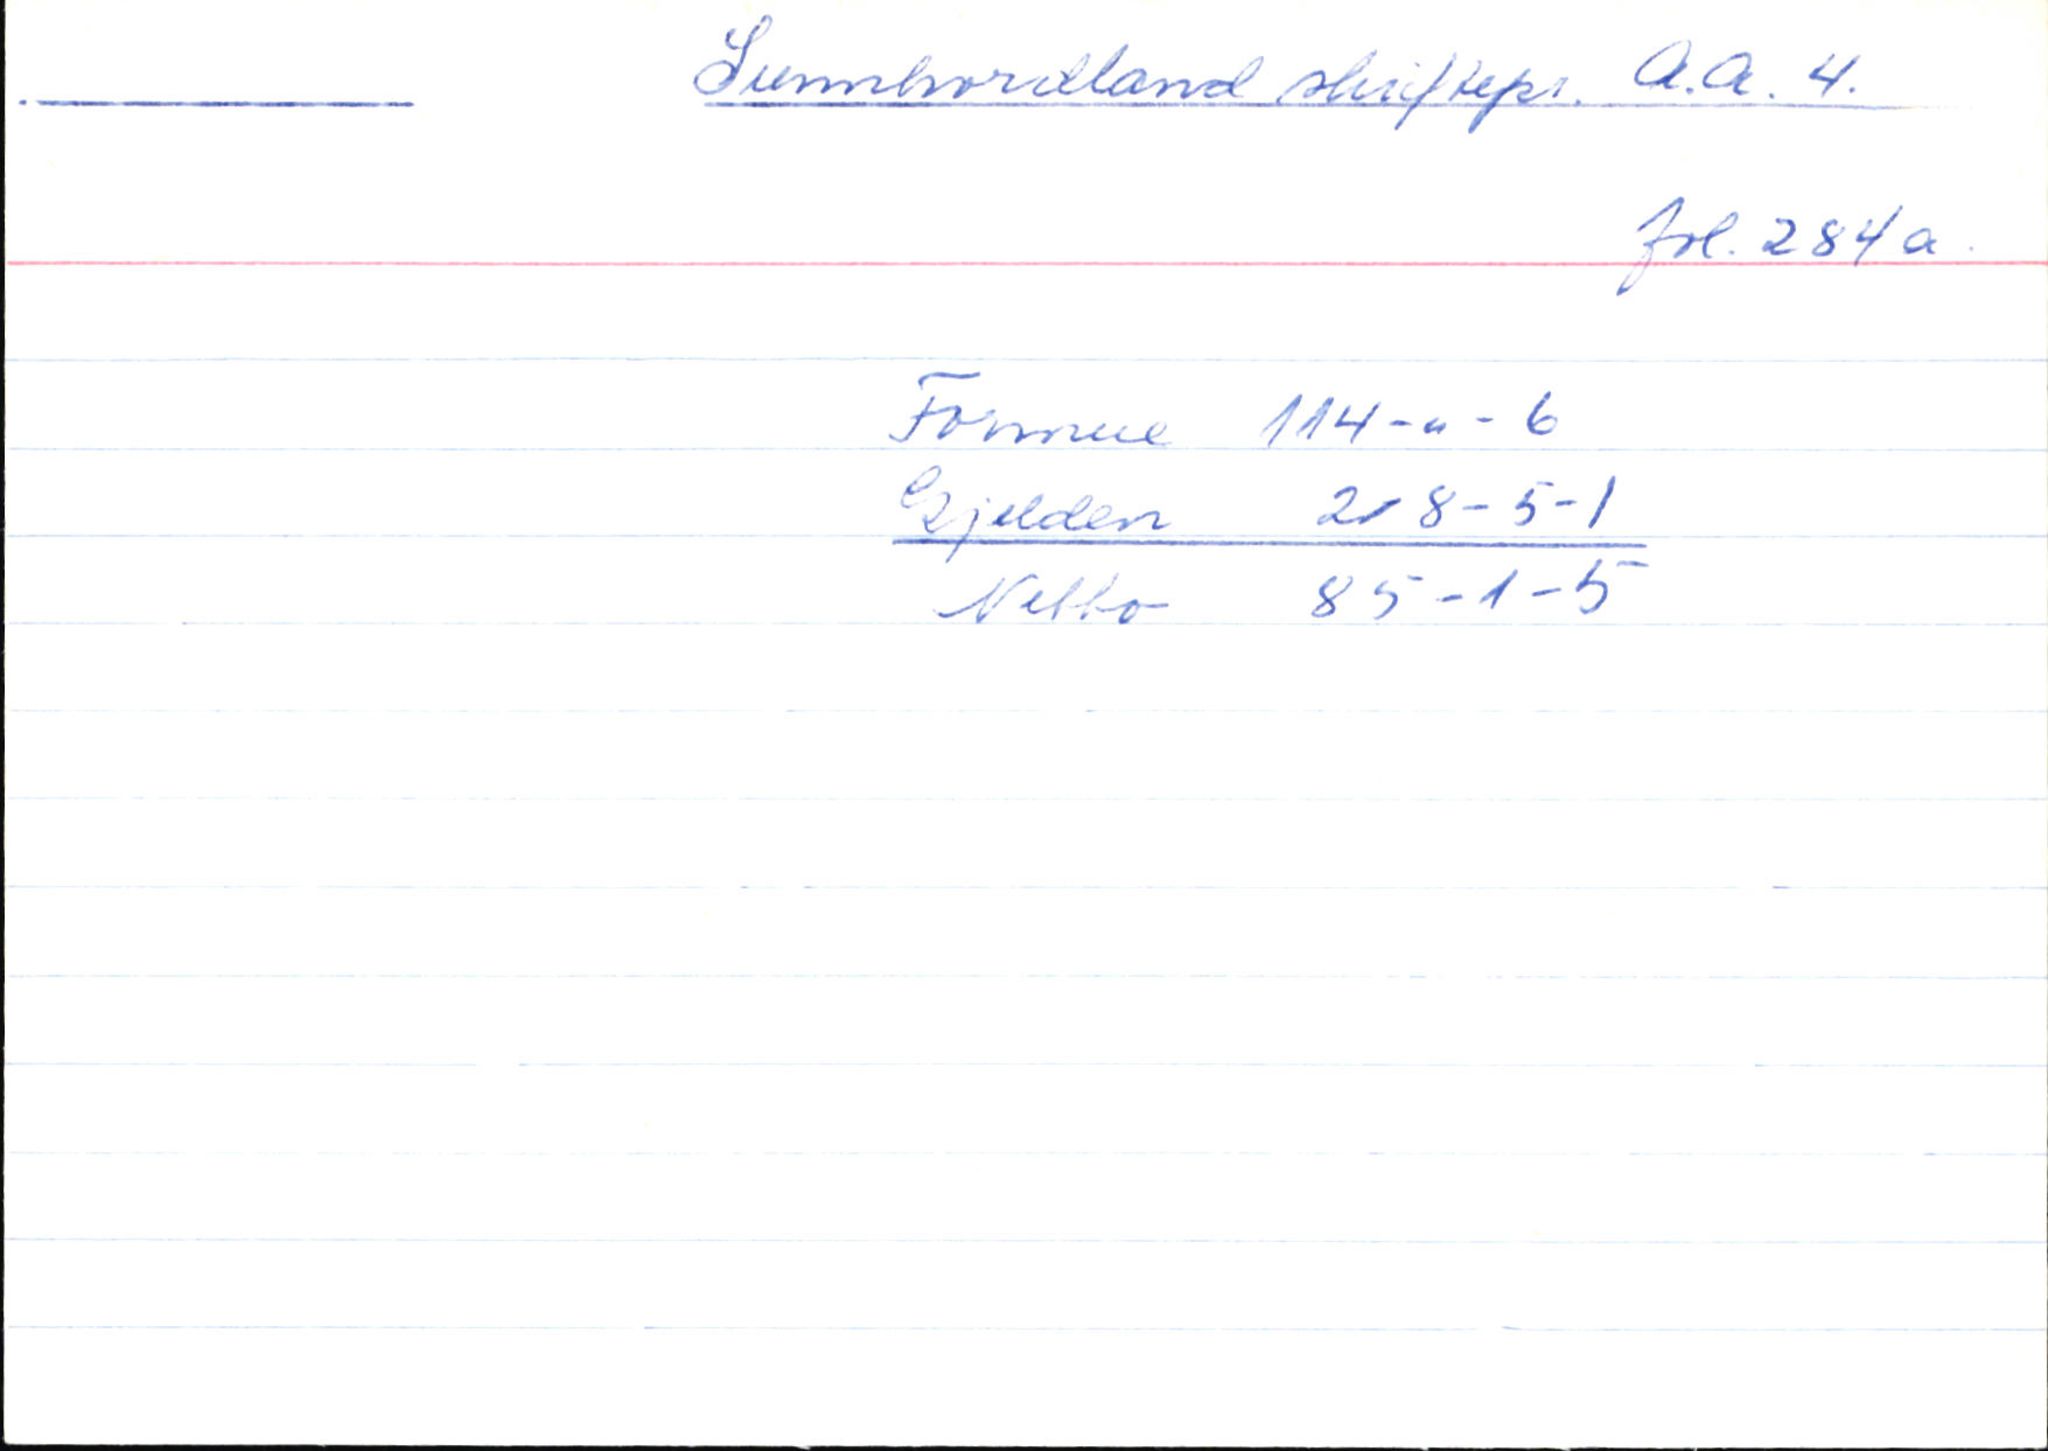 Sunnhordland skiftepr. A.A. 4.
fol. 284a.
Formue 114-"-6
Gjelden 28-5-1
Netto 85-1-5